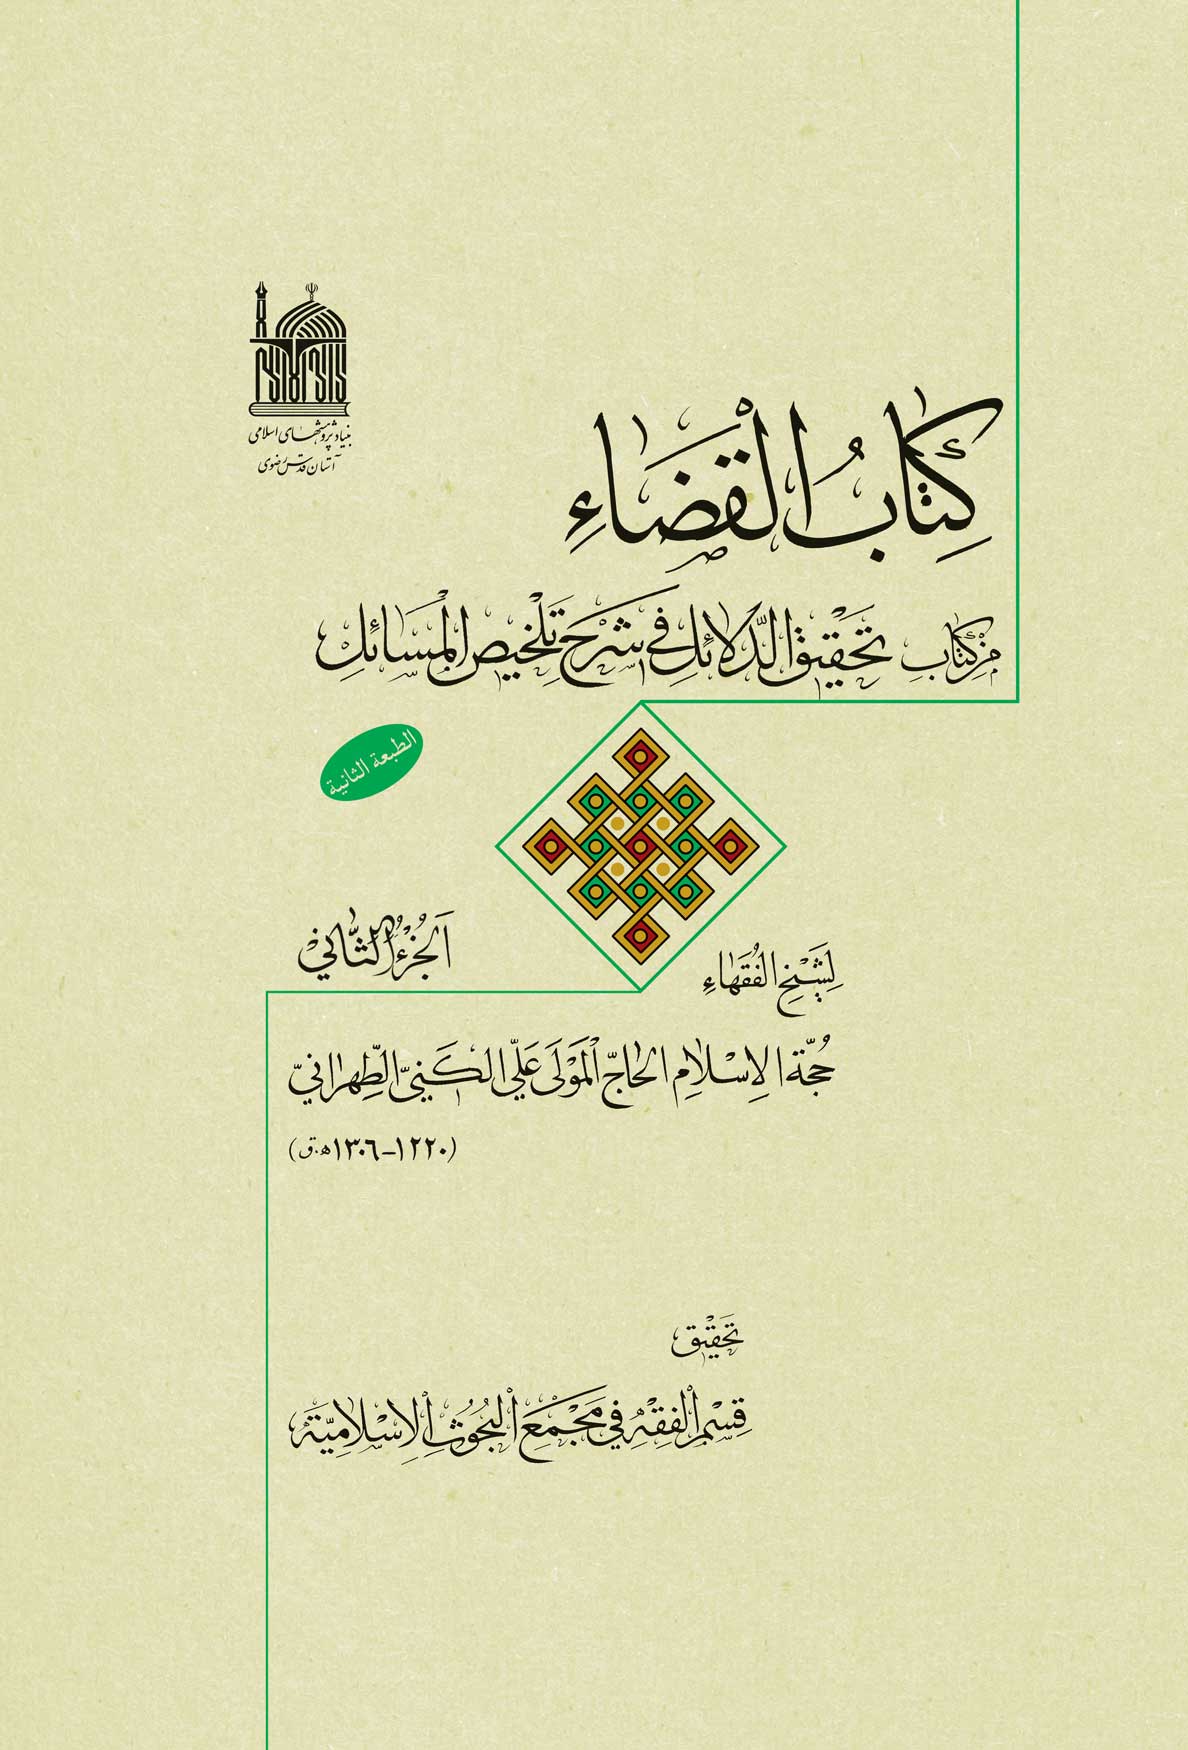 بنیاد پژوهشهای اسلامی
آستان قدس رضوی
كِتَابُ الْقَضَاءِ
مِنْ كِتَابِ تَحْقِيقِ الدَّلَائِلِ فِي شَرْحِ تَلْخِيصِ الْمَسَائِلِ
الطبعة الثانية
اَلْجُزْءُ الثَّانِي
لِشَيْخِ الْفُقَهَاءِ
حُجَّةِ الْاِسْلَامِ الْحَاجِّ الْمَوْلَى عَلِيّ الْكَنِيِّ الطِّهْرَانِيِّ
(۱۲۲۰-۱۳۰۶ه.ق)
تَحْقِيق
قِسْمُ الْفِقْهِ فِي مَجْمَعِ الْبُحُوثِ الْاِسْلَامِيَّةِ